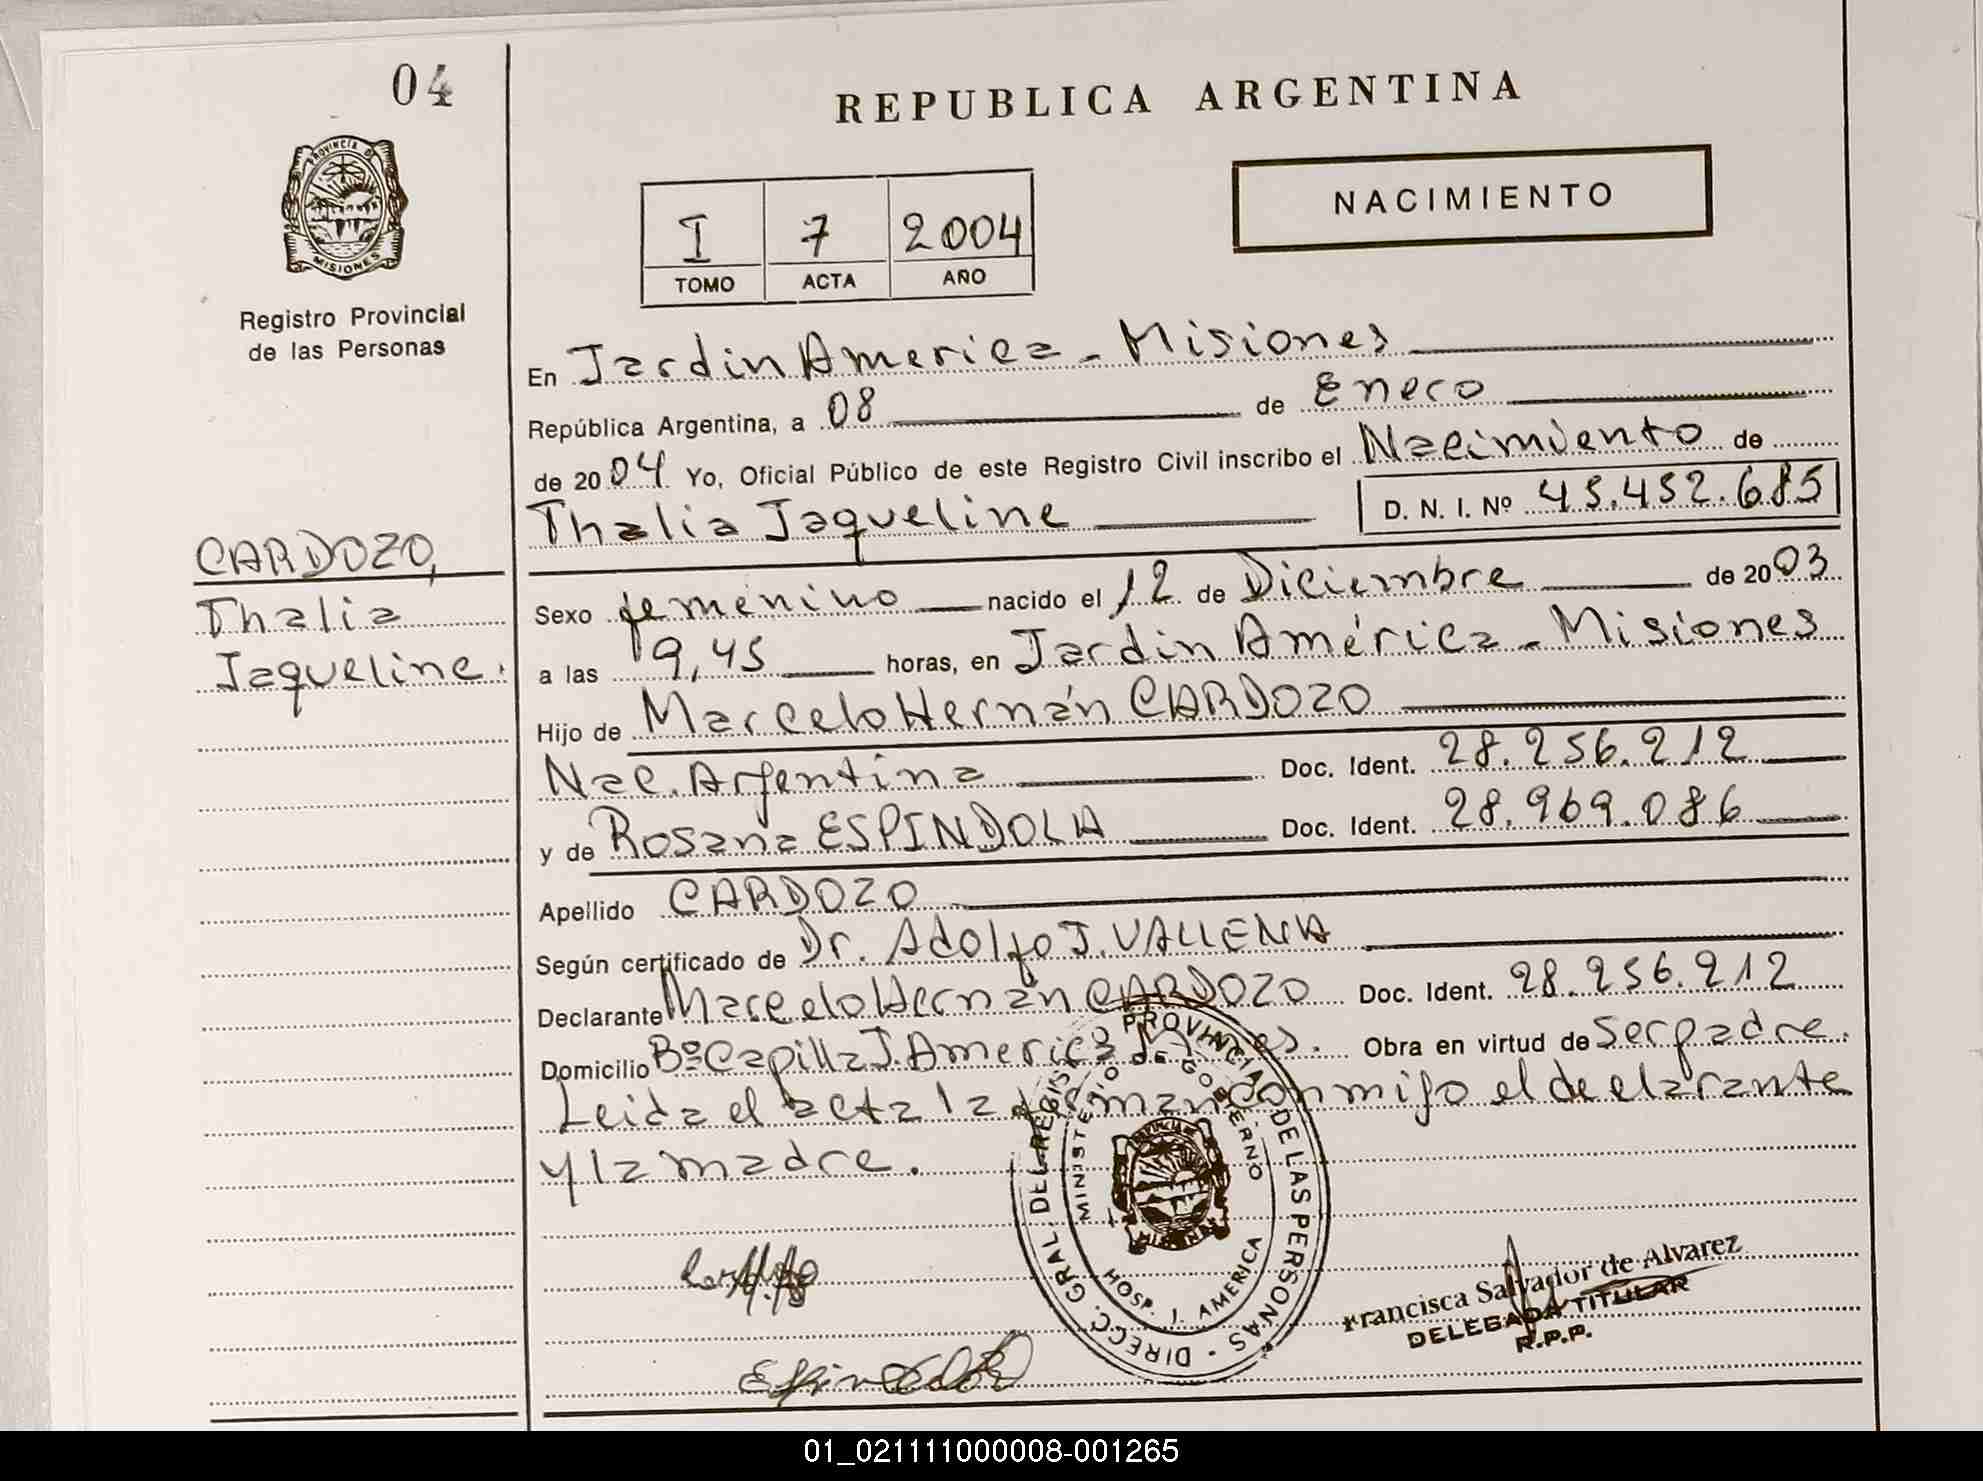 04
REPUBLICA ARGENTINA
PROVINCIA DE
MISIONES
Registro Provincial
de las Personas
I 7 2004
TOMO ACTA AÑO
NACIMIENTO
En Jardin America - Misiones
República Argentina, a 08 de Enero
de 2004 Yo, Oficial Público de este Registro Civil inscribo el Nacimiento de
Thalia Jaqueline D. N. I. Nº 45.452.685
CARDOZO,
Thalia
Jaqueline.
Sexo femenino nacido el 12 de Diciembre de 2003
a las 19,45 horas, en Jardin América - Misiones
Hijo de Marcelo Hernán CARDOZO
Nac. Argentina Doc. Ident. 28.256.212
y de Rosana ESPINDOLA Doc. Ident. 28.969.086
Apellido CARDOZO
Según certificado de Dr. Adolfo J. VALLENA
Declarante Marcelo Hernán CARDOZO Doc. Ident. 28.256.212
Domicilio Bº Capilla J. America Obra en virtud de ser padre.
Leida el acta la firman conmigo el declarante
y la madre.
DIRECC. GRAL. DEL REGIST. PROVINCIAL DE LAS PERSONAS
MINISTERIO DE GOBIERNO
HOSP. J. AMERICA
Francisca Salvador de Alvarez
DELEGADA TITULAR
R.P.P.
01_021111000008-001265